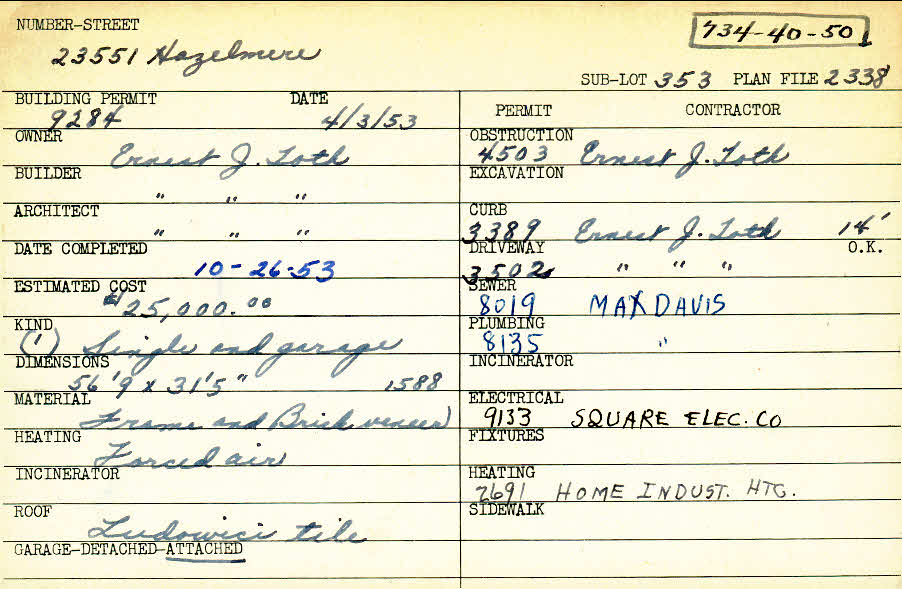 NUMBER-STREET
23551 Hazelmere
734-40-50
SUB-LOT 353 PLAN FILE 2338
BUILDING PERMIT DATE
9284 4/3/53
OWNER
Ernest J. Toth
BUILDER
" " "
ARCHITECT
" " "
DATE COMPLETED
10-26-53
ESTIMATED COST
$25,000.00
KIND
(1) Single and garage
DIMENSIONS
56'9 x 31'5" 1588
MATERIAL
Frame and Brick veneer)
HEATING
Forced air
INCINERATOR
ROOF
Ludowici tile
GARAGE-DETACHED-ATTACHED
PERMIT CONTRACTOR
OBSTRUCTION
4503 Ernest J. Toth
EXCAVATION
CURB
3389 Ernest J. Toth 14'
DRIVEWAY O.K.
3502 " " "
SEWER
8019 MAX DAVIS
PLUMBING
8135 "
INCINERATOR
ELECTRICAL
9133 SQUARE ELEC. CO
FIXTURES
HEATING
2691 HOME INDUST. HTG.
SIDEWALK